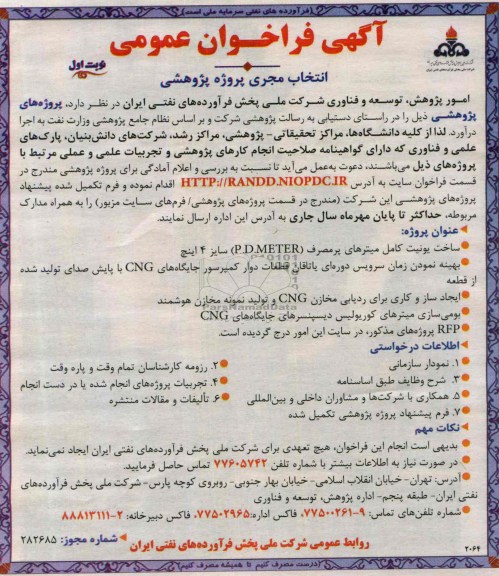 (فرآورده های نفتی سرمایه ملی است)
آگهی فراخوان عمومی
نوبت اول
انتخاب مجری پروژه پژوهشی
امور پژوهش، توسعه و فناوری شرکت ملی پخش فرآورده‌های نفتی ایران در نظر دارد، پروژه‌های
پژوهشی ذیل را در راستای دستیابی به رسالت پژوهشی شرکت و بر اساس نظام جامع پژوهشی وزارت نفت به اجرا
درآورد. لذا از کلیه دانشگاه‌ها، مراکز تحقیقاتی- پژوهشی، مراکز رشد، شرکت‌های دانش‌بنیان، پارک‌های
علمی و فناوری که دارای گواهینامه صلاحیت انجام کارهای پژوهشی و تجربیات علمی و عملی مرتبط با
پروژه‌های ذیل می‌باشند، دعوت به‌عمل می‌آید تا نسبت به بررسی و اعلام آمادگی برای پروژه پژوهشی مندرج در
قسمت فراخوان سایت به آدرس HTTP://RANDD.NIOPDC.IR اقدام نموده و فرم تکمیل شده پیشنهاد
پروژه‌های پژوهشی این شرکت (مندرج در قسمت پروژه‌های پژوهشی/ فرم‌های سایت مزبور) را به همراه مدارک
مربوطه، حداکثر تا پایان مهرماه سال جاری به آدرس این اداره ارسال نمایند.
عنوان پروژه:
ساخت یونیت کامل میترهای پرمصرف (P.D.METER) سایز ۴ اینچ
بهینه نمودن زمان سرویس دوره‌ای یاتاقان قطعات دوار کمپرسور جایگاه‌های CNG با پایش صدای تولید شده
از قطعه
ایجاد ساز و کاری برای ردیابی مخازن CNG و تولید نمونه مخازن هوشمند
بومی‌سازی میترهای کوریولیس دیسپنسرهای جایگاه‌های CNG
RFP پروژه‌های مذکور، در سایت این امور درج گردیده است.
ParsNamadData
اطلاعات درخواستی
۱. نمودار سازمانی ۲. رزومه کارشناسان تمام وقت و پاره وقت
۳. شرح وظایف طبق اساسنامه ۴. تجربیات پروژه‌های انجام شده یا در دست انجام
۵. همکاری با شرکت‌ها و مشاوران داخلی و بین‌المللی ۶. تألیفات و مقالات منتشره
۷. فرم پیشنهاد پروژه پژوهشی تکمیل شده
نکات مهم
بدیهی است انجام این فراخوان، هیچ تعهدی برای شرکت ملی پخش فرآورده‌های نفتی ایران ایجاد نمی‌نماید.
در صورت نیاز به اطلاعات بیشتر با شماره تلفن ۷۷۶۰۵۷۴۲ تماس حاصل فرمایید.
آدرس: تهران- خیابان انقلاب اسلامی- خیابان بهار جنوبی- روبروی کوچه پارس- شرکت ملی پخش فرآورده‌های
نفتی ایران- طبقه پنجم- اداره پژوهش، توسعه و فناوری
شماره تلفن‌های تماس: ۹-۷۷۵۰۰۲۶۱، فاکس اداره: ۷۷۵۰۲۹۶۵، فاکس دبیرخانه: ۲-۸۸۸۱۳۱۱۱
شماره مجوز: ۲۸۲۶۸۵
روابط عمومی شرکت ملی پخش فرآورده‌های نفتی ایران
۲۰۶۴
(درست مصرف کنیم تا همیشه مصرف کنیم)